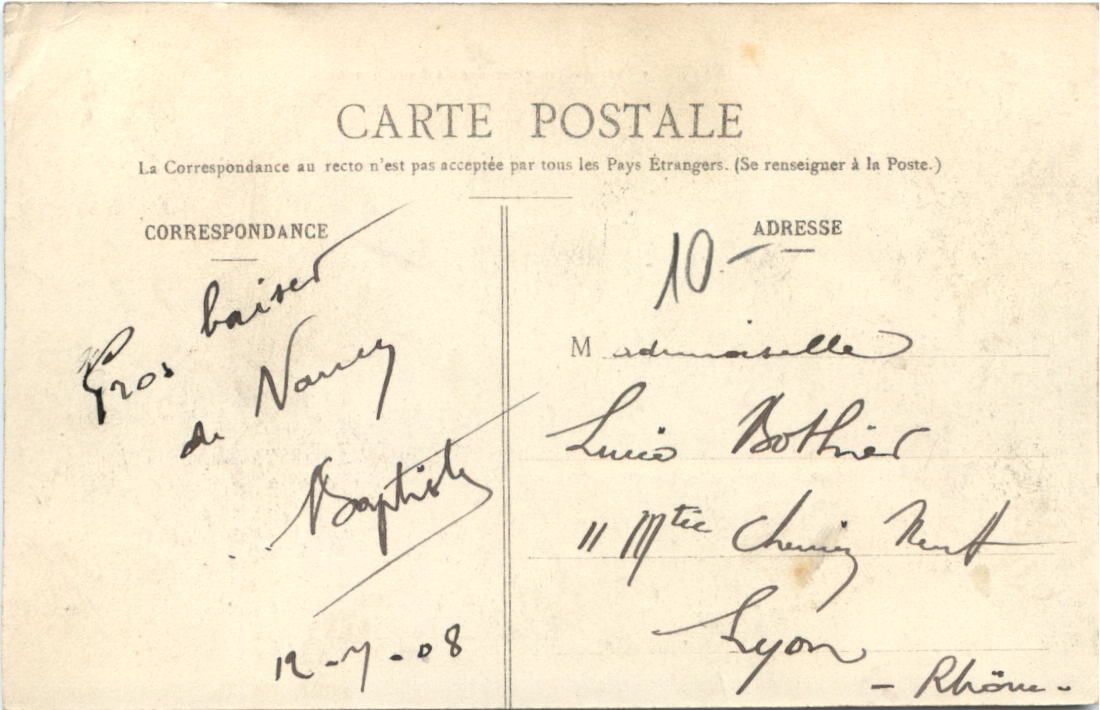 CARTE POSTALE
La Correspondance au recto n'est pas acceptée par tous les Pays Étrangers. (Se renseigner à la Poste.)
CORRESPONDANCE
Gros baiser
de Nancy
Baptiste
12-7-08
ADRESSE
10-
Mademoiselle
Bothier
11 Mtée Chemin Neuf
Lyon
- Rhône -